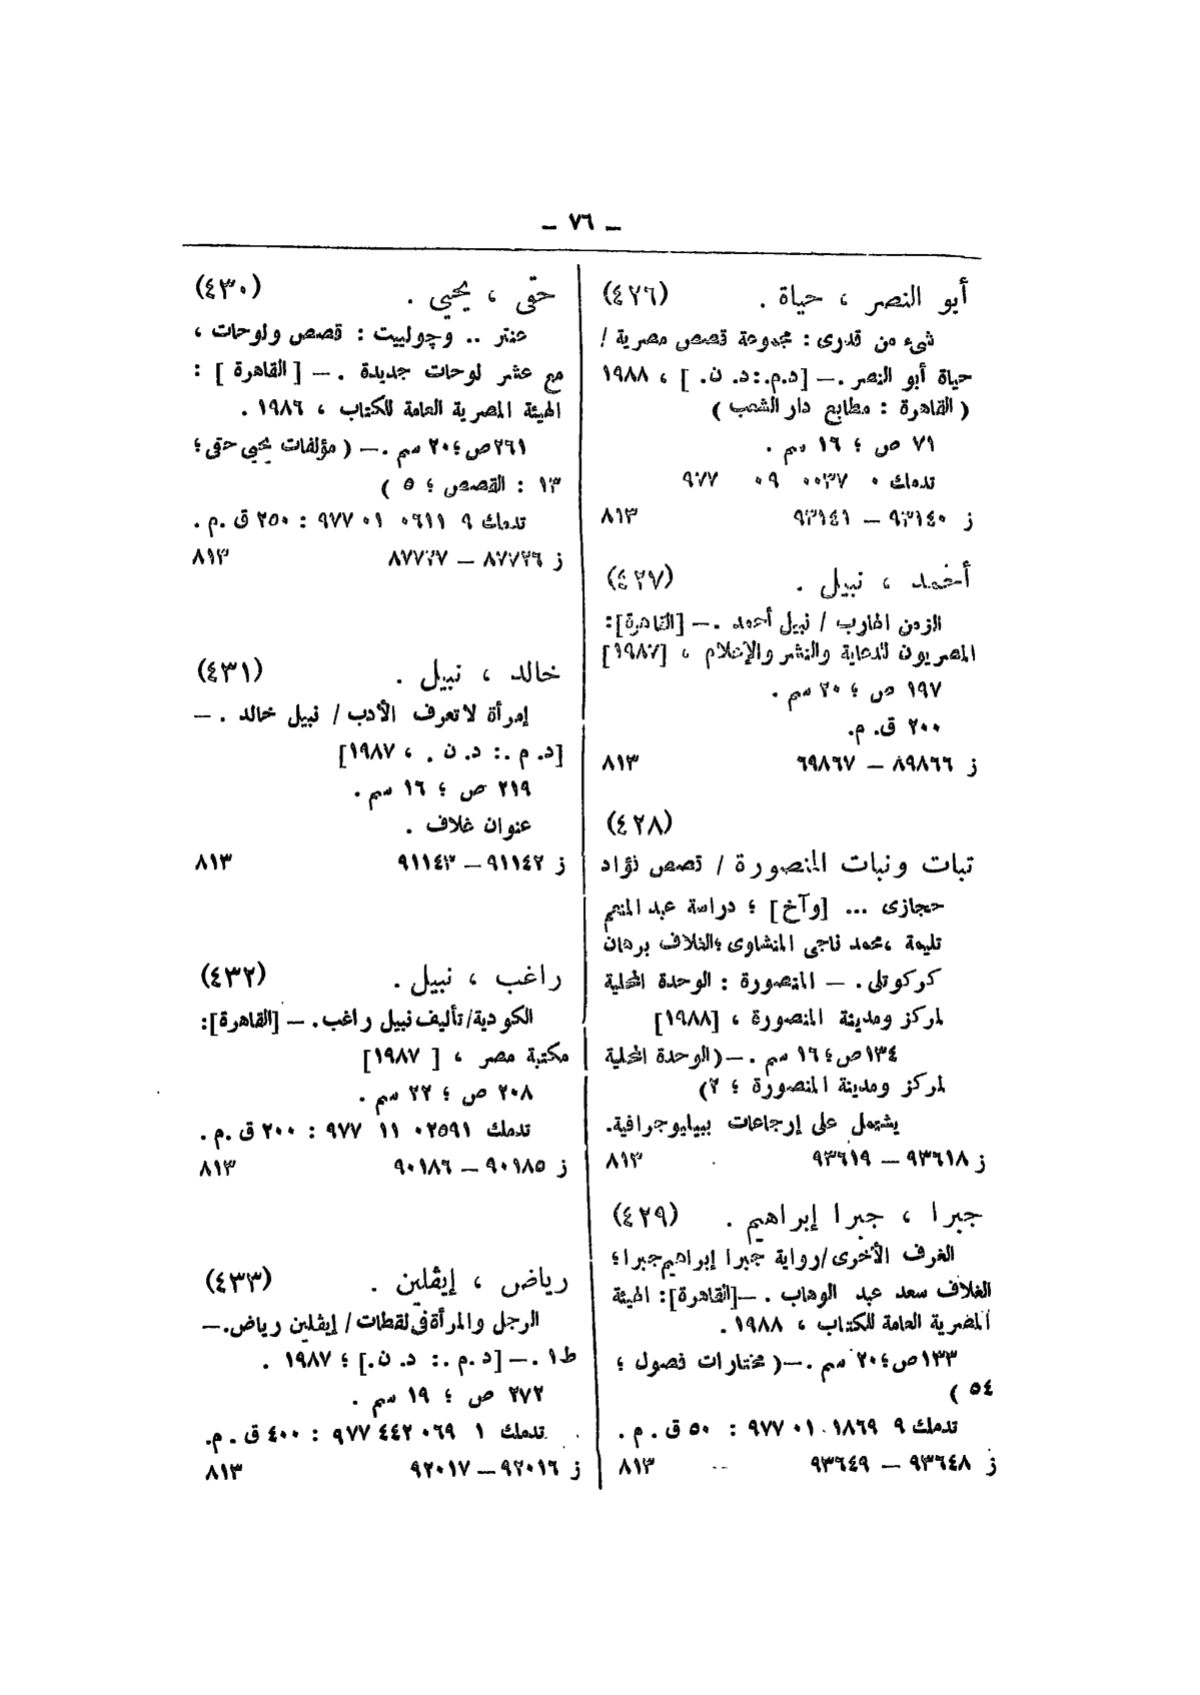 ـ ٧٦ ـ
أبو النصر ، حياة . (٤٢٦)
شىء من قدرى : مجموعة قصص مصرية /
حياة أبو النصر .ــ [د.م.:د. ن. ] ، ١٩٨٨
( القاهرة : مطابع دار الشعب )
٧١ ص ؛ ١٦ سم .
تدمك ٠ ٠٠٣٧ ٠٩ ٩٧٧
ز ٩٣١٤٠ ــ ٩٣١٤١ ٨١٣
أحمد ، نبيل . (٤٢٧)
الزمن الهارب / نبيل أحمد .ــ [القاهرة]:
المصريون للدعاية والنشر والإعلام ، [١٩٨٧]
١٩٧ ص ؛ ٢٠ سم .
٢٠٠ ق. م.
ز ٨٩٨٦٦ ــ ٦٩٨٦٧ ٨١٣
(٤٢٨)
تبات ونبات المنصورة / قصص نؤاد
حجازى ... [وآخ] ؛ دراسة عبد المنعم
تليمة ،محمد ناجى المنشاوى ؛الغلاف برهان
كركوتلى. ــ المنصورة : الوحدة المحلية
لمركز ومدينة المنصورة ، [١٩٨٨]
١٣٤ص؛١٦ سم .ــ(الوحدة المحلية
لمركز ومدينة المنصورة ؛ ٢)
يشتمل على إرجاعات ببيليوجرافية.
ز ٩٣٦١٨ ــ ٩٣٦١٩ ٨١٣
جبرا ، جبرا إبراهيم . (٤٢٩)
الغرف الأخرى/رواية جبرا إبراهيم جبرا؛
الغلاف سعد عبد الوهاب .ــ[القاهرة]: الهيئة
المصرية العامة للكتاب ، ١٩٨٨ .
١٣٣ص؛٢٠ سم .ــ( مختارات فصول ؛
٥٤ )
تدمك ٩ ١٨٦٩ ٠١ ٩٧٧ : ٥٠ ق . م .
ز ٩٣٦٤٨ ــ ٩٣٦٤٩ ٨١٣
حقى ، يحيى . (٤٣٠)
عنتر .. وچولييت : قصص ولوحات ،
مع عشر لوحات جديدة .ــ [ القاهرة ] :
الهيئة المصرية العامة للكتاب ، ١٩٨٦ .
٢٦١ص؛٢٠ سم .ــ ( مؤلفات يحيى حقى ؛
١٣ : القصص ؛ ٥ )
تدمك ٩ ٠٦١١ ٠١ ٩٧٧ : ٢٥٠ ق .م .
ز ٨٧٧٢٦ ــ ٨٧٧٢٧ ٨١٣
خالد ، نبيل . (٤٣١)
إمرأة لا تعرف الأدب / نبيل خالد . ــ
[د. م .: د. ن . ، ١٩٨٧]
٢١٩ ص ؛ ١٦ سم .
عنوان غلاف .
ز ٩١١٤٢ ــ ٩١١٤٣ ٨١٣
راغب ، نبيل . (٤٣٢)
الكودية/تأليف نبيل راغب. ــ [القاهرة]:
مكتبة مصر ، [ ١٩٨٧]
٢٠٨ ص ؛ ٢٢ سم .
تدمك ٠٢٥٩١ ١١ ٩٧٧ : ٢٠٠ ق .م .
ز ٩٠١٨٥ ــ ٩٠١٨٦ ٨١٣
رياض ، إيڤلين . (٤٣٣)
الرجل والمرأة فى لقطات / إيڤلين رياض.ــ
ط١ .ــ [د .م .: د. ن.] ؛ ١٩٨٧ .
٢٧٢ ص ؛ ١٩ سم .
تدمك ١ ٠٦٩ ٤٤٢ ٩٧٧ : ٤٠٠ ق . م.
ز ٩٢٠١٦ ــ ٩٢٠١٧ ٨١٣